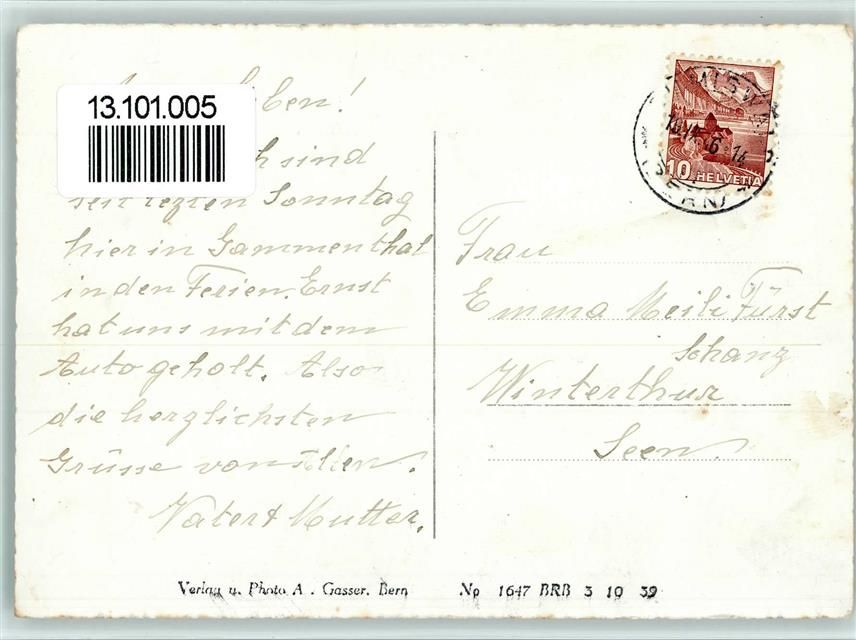 13.101.005
Eben!
sind
seit lezten Sonntag
hier in Gammenthal
in den Ferien. Ernst
hat uns mit dem
Auto geholt. Also
die herzlichsten
Grüsse von Allen.
Vater & Mutter.
10 HELVETIA
Frau
Emma Meili Fürst
Schanz
Winterthur
Seen.
Verlag u. Photo A. Gasser, Bern
No 1647 BRB 3 10 39